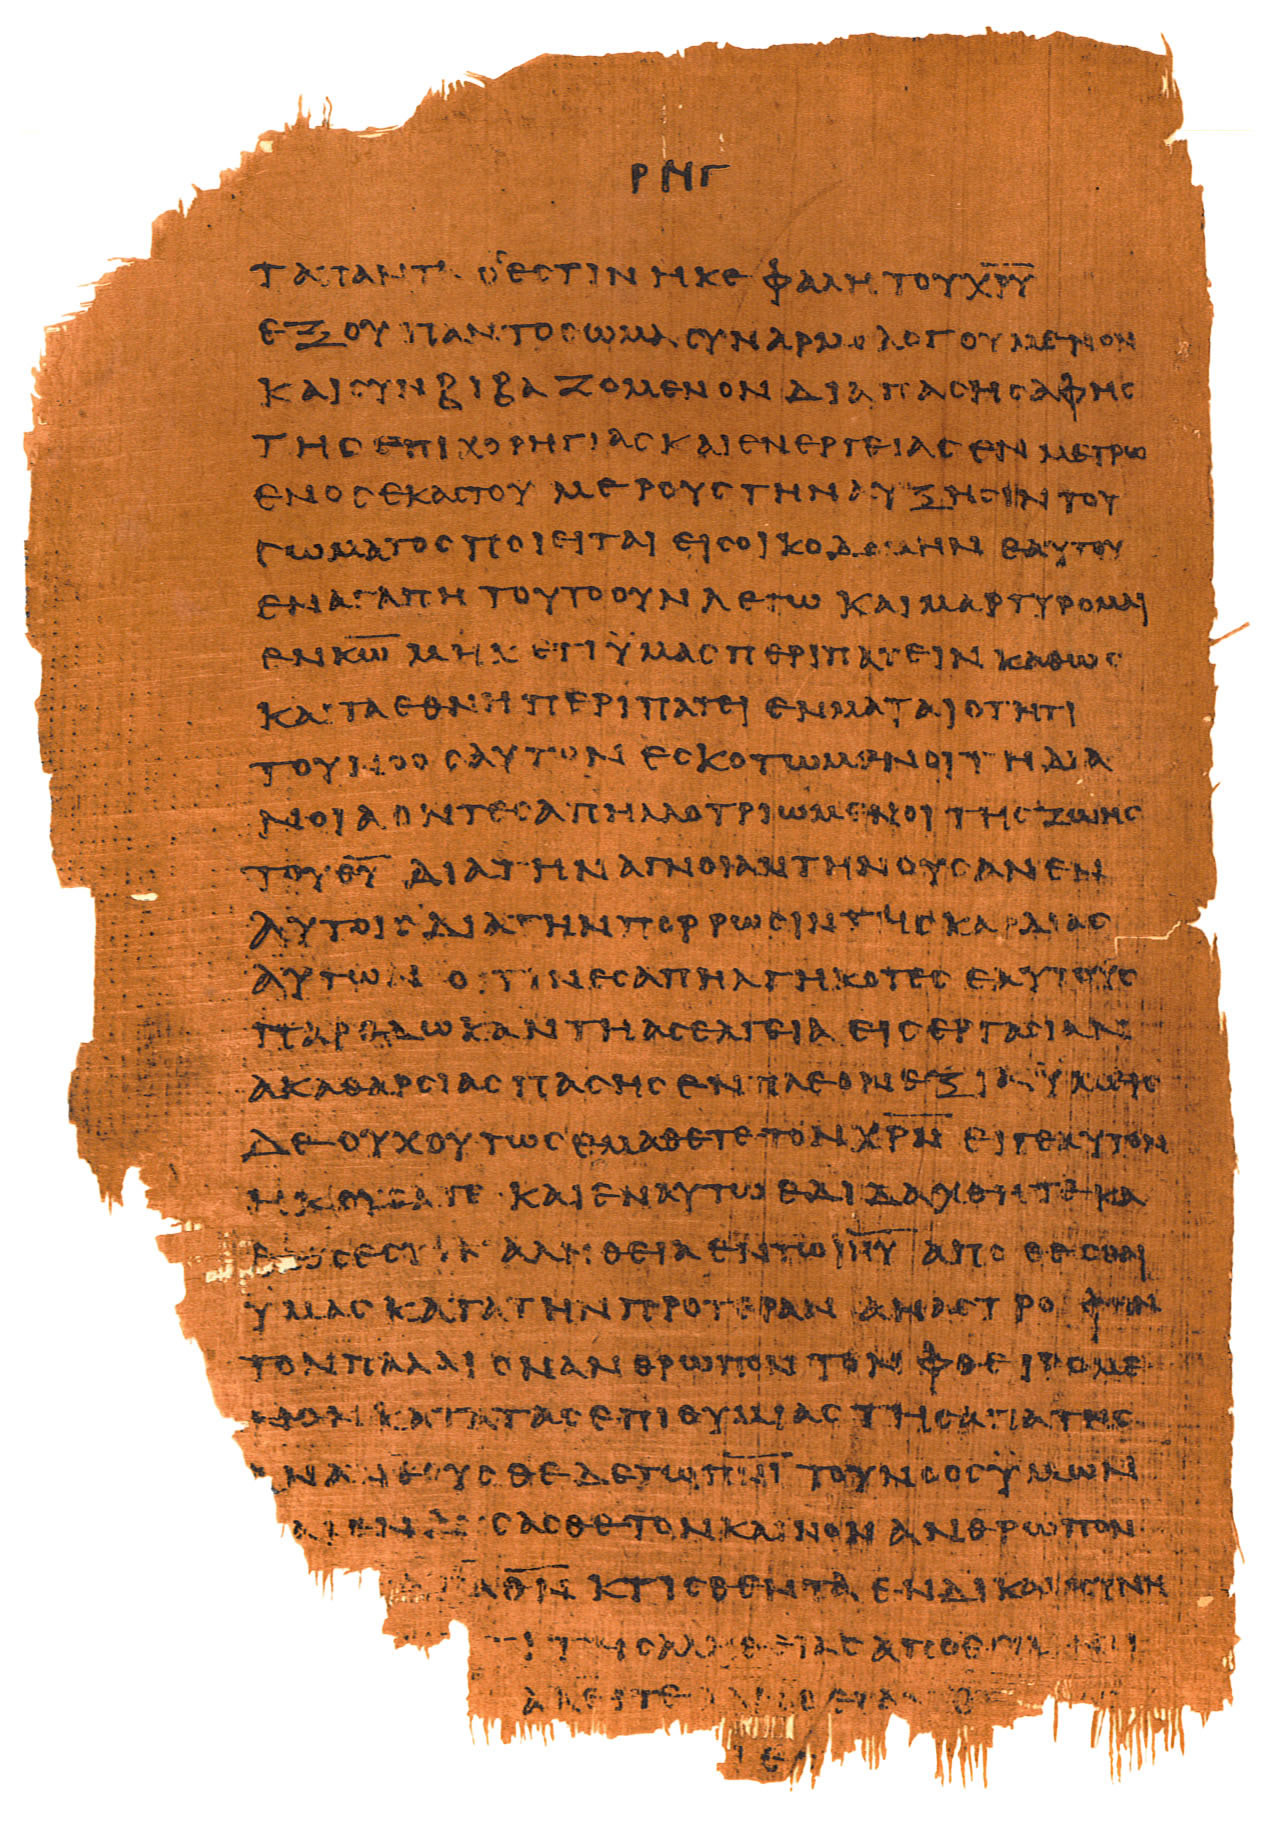 ΡΝΓ
ΤΑ ΠΑΝΤΑ ΟΣ ΕΣΤΙΝ Η ΚΕΦΑΛΗ ΤΟΥ Χ̅Ρ̅Υ̅
ΕΞ ΟΥ ΠΑΝ ΤΟ ΣΩΜΑ ΣΥΝΑΡΜΟΛΟΓΟΥΜΕΝΟΝ
ΚΑΙ ΣΥΝΒΙΒΑΖΟΜΕΝΟΝ ΔΙΑ ΠΑΣΗΣ ΑΦΗΣ
ΤΗΣ ΕΠΙΧΟΡΗΓΙΑΣ ΚΑΙ ΕΝΕΡΓΕΙΑΣ ΕΝ ΜΕΤΡΩ
ΕΝΟΣ ΕΚΑΣΤΟΥ ΜΕΡΟΥΣ ΤΗΝ ΑΥΞΗΣΙΝ ΤΟΥ
ΣΩΜΑΤΟΣ ΠΟΙΕΙΤΑΙ ΕΙΣ ΟΙΚΟΔΟΜΗΝ ΕΑΥΤΟΥ
ΕΝ ΑΓΑΠΗ ΤΟΥΤΟ ΟΥΝ ΛΕΓΩ ΚΑΙ ΜΑΡΤΥΡΟΜΑΙ
ΕΝ Κ̅Ω̅ ΜΗΚΕΤΙ ΫΜΑΣ ΠΕΡΙΠΑΤΕΙΝ ΚΑΘΩΣ
ΚΑΙ ΤΑ ΕΘΝΗ ΠΕΡΙΠΑΤΕΙ ΕΝ ΜΑΤΑΙΟΤΗΤΙ
ΤΟΥ ΝΟΟΣ ΑΥΤΩΝ ΕΣΚΟΤΩΜΕΝΟΙ ΤΗ ΔΙΑ
ΝΟΙΑ ΟΝΤΕΣ ΑΠΗΛΛΟΤΡΙΩΜΕΝΟΙ ΤΗΣ ΖΩΗΣ
ΤΟΥ Θ̅Υ̅ ΔΙΑ ΤΗΝ ΑΓΝΟΙΑΝ ΤΗΝ ΟΥΣΑΝ ΕΝ
ΑΥΤΟΙΣ ΔΙΑ ΤΗΝ ΠΟΡΡΩΣΙΝ ΤΗΣ ΚΑΡΔΙΑΣ
ΑΥΤΩΝ ΟΙΤΙΝΕΣ ΑΠΗΛΓΗΚΟΤΕΣ ΕΑΥΤΟΥΣ
ΠΑΡΕΔΩΚΑΝ ΤΗ ΑΣΕΛΓΕΙΑ ΕΙΣ ΕΡΓΑΣΙΑΝ
ΑΚΑΘΑΡΣΙΑΣ ΠΑΣΗΣ ΕΝ ΠΛΕΟΝΕΞΙΑ ΫΜΕΙΣ
ΔΕ ΟΥΧ ΟΥΤΩΣ ΕΜΑΘΕΤΕ ΤΟΝ Χ̅Ρ̅Ν̅ ΕΙ ΓΕ ΑΥΤΟΝ
ΗΚΟΥΣΑΤΕ ΚΑΙ ΕΝ ΑΥΤΩ ΕΔΙΔΑΧΘΗΤΕ ΚΑ
ΘΩΣ ΕΣΤΙΝ ΑΛΗΘΕΙΑ ΕΝ ΤΩ Ι̅Η̅Υ̅ ΑΠΟΘΕΣΘΑΙ
ΫΜΑΣ ΚΑΤΑ ΤΗΝ ΠΡΟΤΕΡΑΝ ΑΝΑΣΤΡΟΦΗΝ
ΤΟΝ ΠΑΛΑΙΟΝ ΑΝΘΡΩΠΟΝ ΤΟΝ ΦΘΕΙΡΟΜΕ
ΝΟΝ ΚΑΤΑ ΤΑΣ ΕΠΙΘΥΜΙΑΣ ΤΗΣ ΑΠΑΤΗΣ
ΑΝΑΝΕΟΥΣΘΕ ΔΕ ΤΩ Π̅Ν̅Ι̅ ΤΟΥ ΝΟΟΣ ΫΜΩΝ
ΣΑΣΘΕ ΤΟΝ ΚΑΙΝΟΝ ΑΝΘΡΩΠΟΝ
Θ̅Ν̅ ΚΤΙΣΘΕΝΤΑ ΕΝ ΔΙΚΑΙΟΣΥΝΗ
ΤΗΣ ΑΛΗΘΕΙΑΣ ΑΠΟΘΕΜΕΝΟΙ